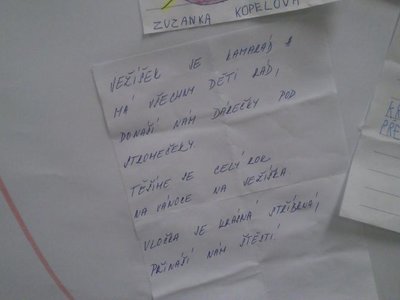 ZUZANKA KOPELOVÁ
JEŽÍŠEK JE KAMARÁD A
MÁ VŠECHNY DĚTI RÁD,
DONAŠÍ NÁM DÁREČKY POD
STROMEČEKY.
TĚŠÍME SE CELÝ ROK
NA VÁNOCE NA JEŽÍŠKA.
VLOČKA JE KRÁSNÁ STŘÍBRNÁ,
PŘINÁŠÍ NÁM ŠTĚSTÍ